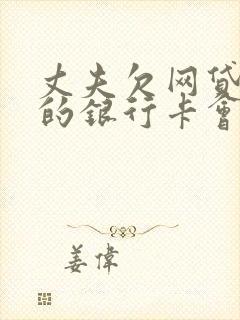 丈夫欠网贷
的银行卡會
姜偉